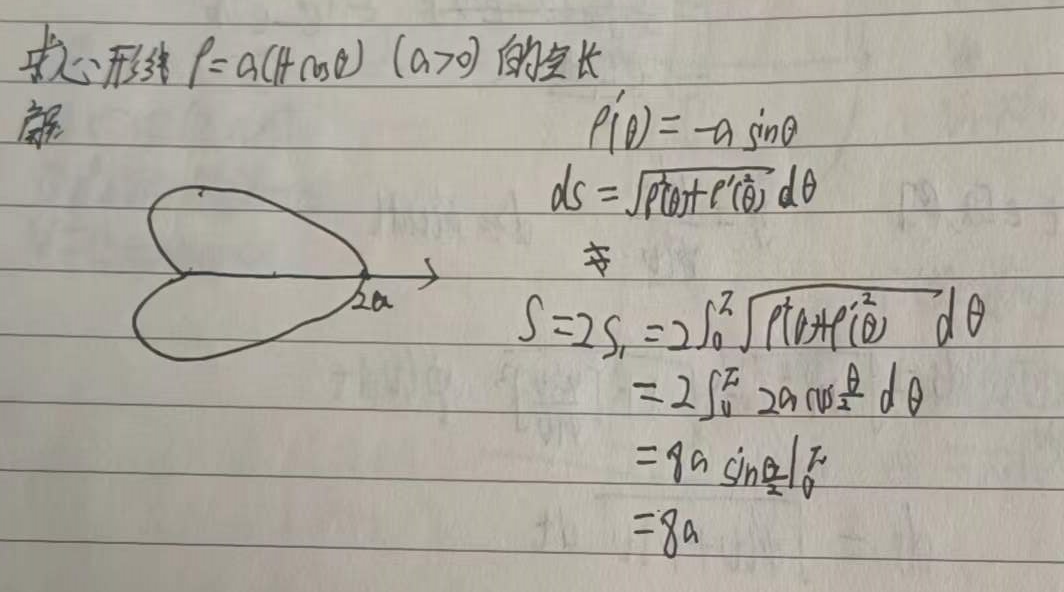 求心形线 ρ=a(1+cosθ) (a>0) 的全长
解
ρ'(θ) = -a sinθ
ds = √(ρ²(θ)+ρ'²(θ)) dθ
2a
S = 2S₁ = 2∫₀^π √(ρ²(θ)+ρ'²(θ)) dθ
= 2∫₀^π 2a cos θ/2 dθ
= 8a sin θ/2 |₀^π
= 8a